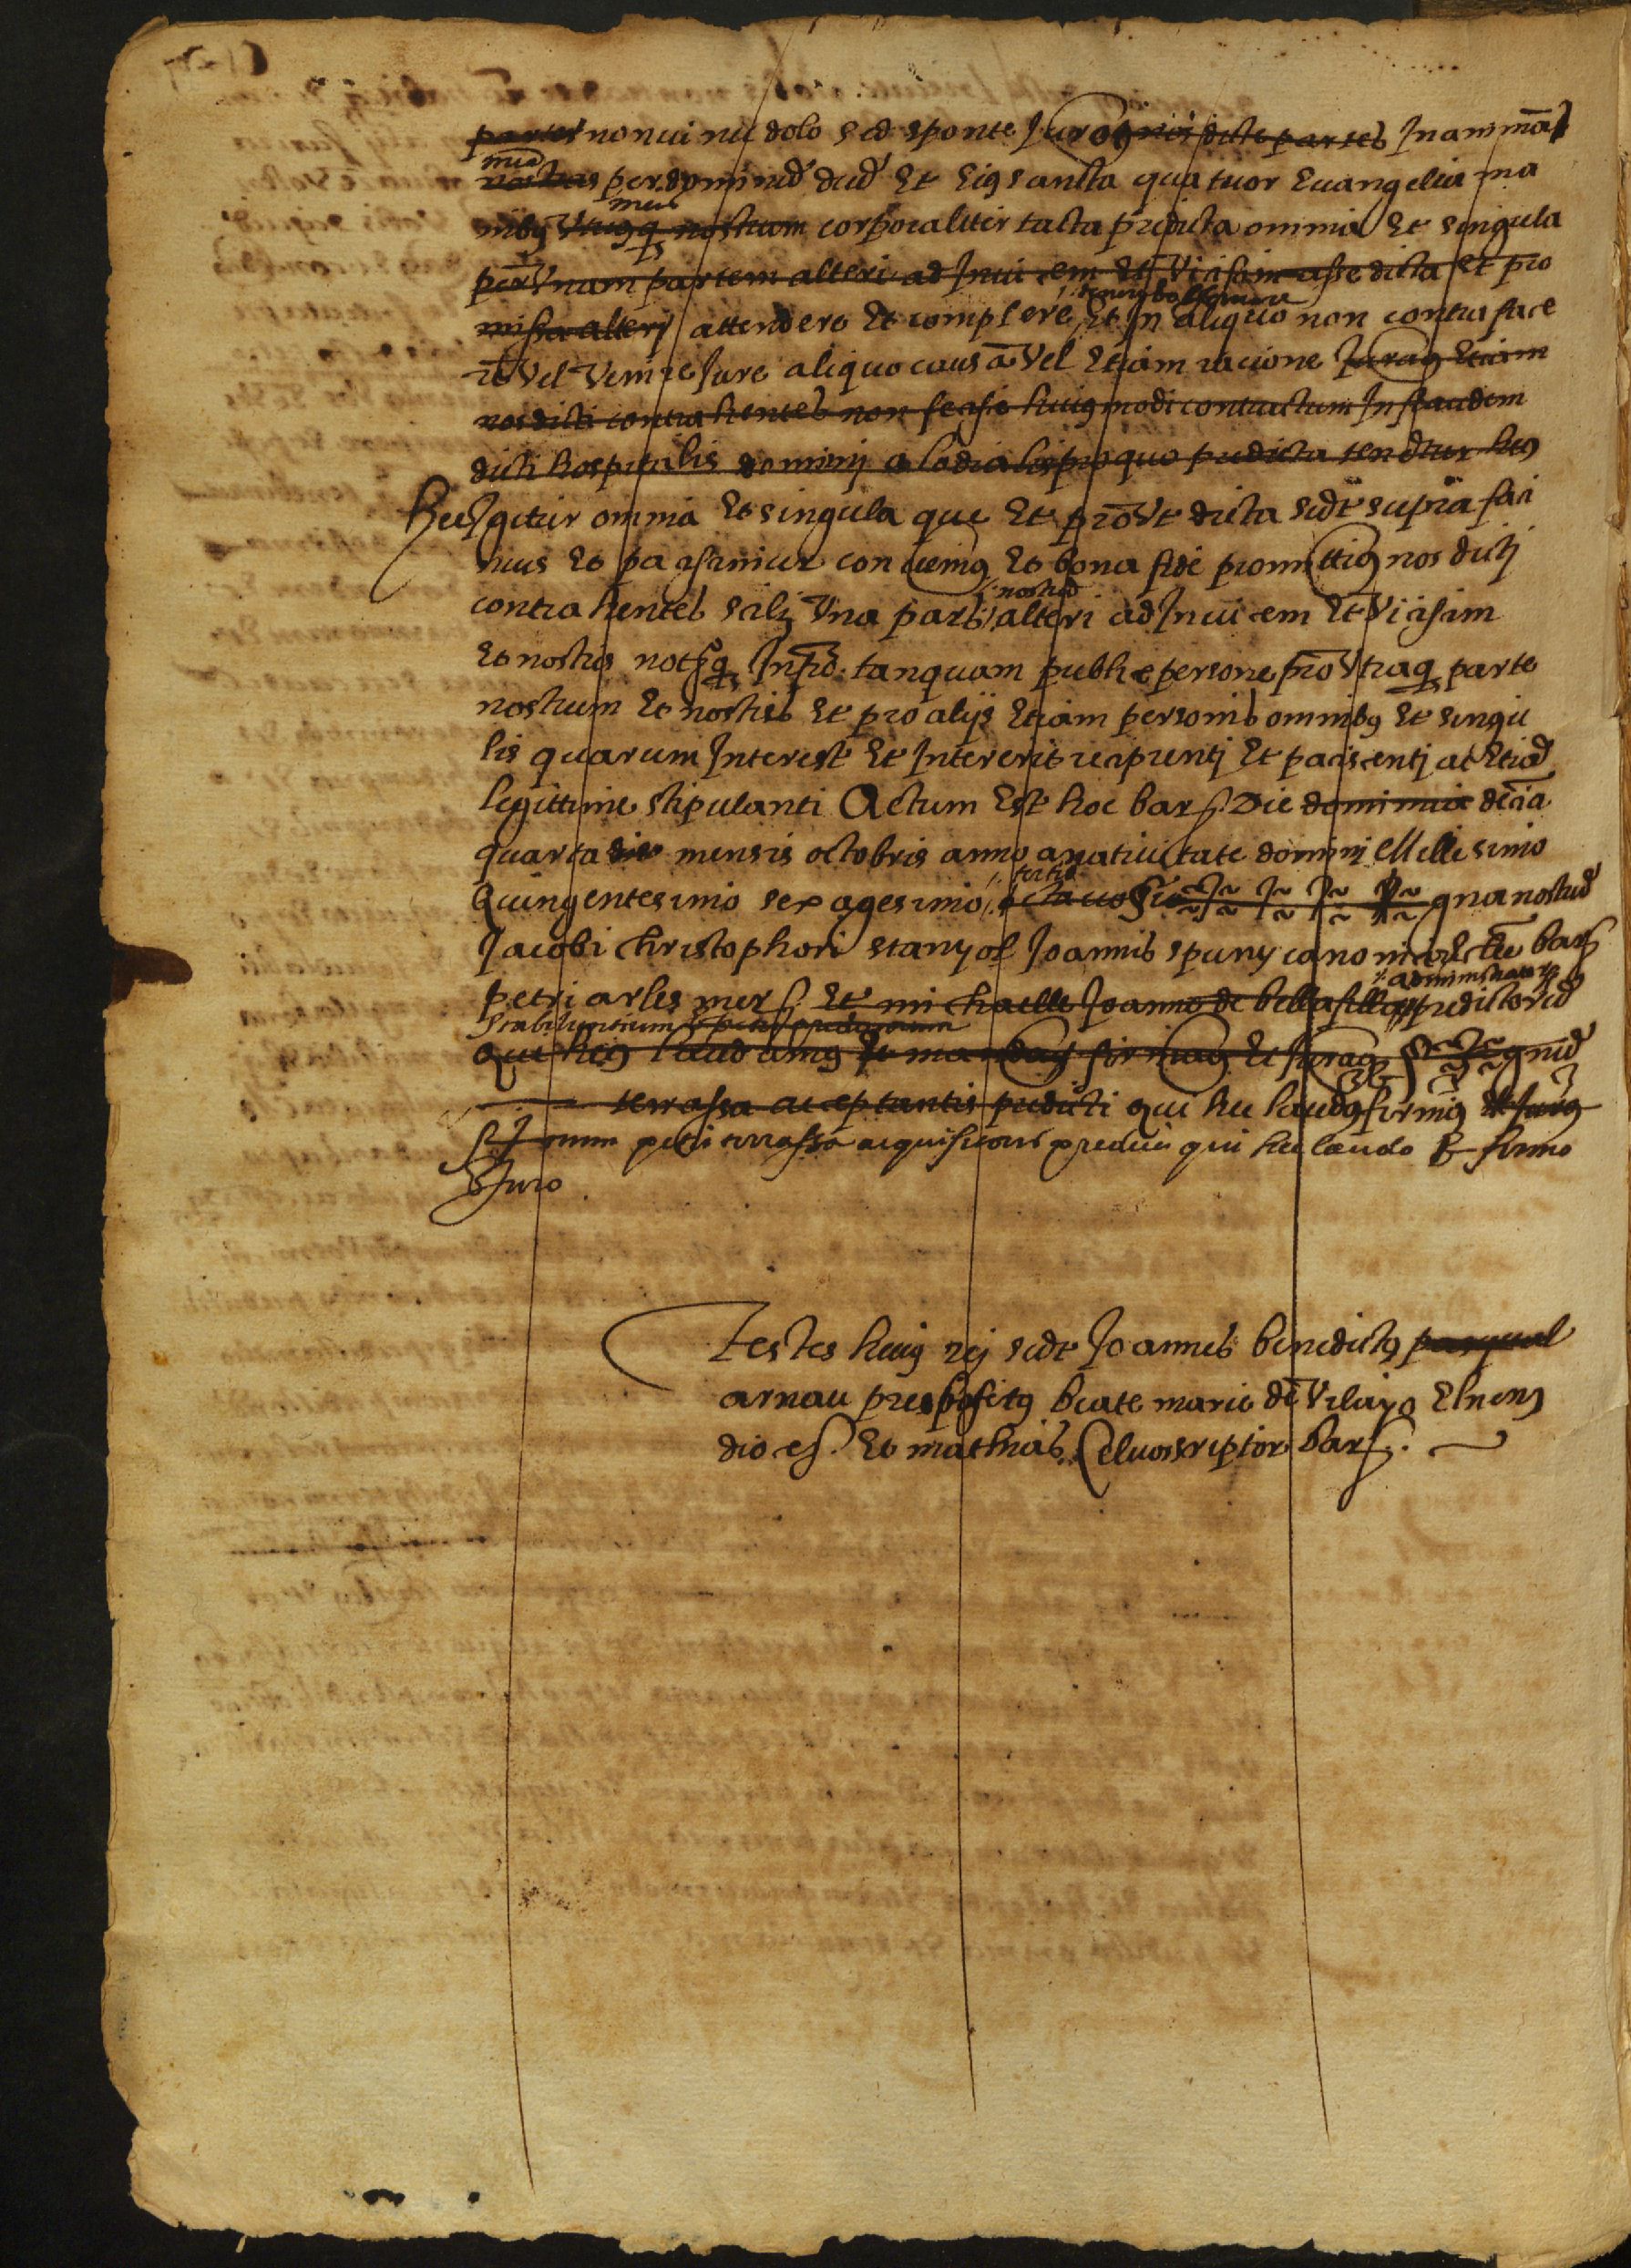 partes non vi nec dolo sed sponte Juramus nos dicte partes In animam
meam
nostras per dominum deum Et Eius sancta quatuor Euangelia ma
meis
nibus Utriusque nostrum corporaliter tacta predicta omnia Et singula
per Unam partem alteri ad Inuicem Et Vicissim asse dicta Et pro
missa alteri attendere Et complere Et In aliquo non contraface
re Vel Venire Jure aliquo causa Vel Etiam racione Juramus Etiam
nos dicti contrahentes non fecisse huiusmodi contractum In fraudem
dicti hospitalis dominij alodialis pro quo predicta tenetur hec
Hec Igitur omnia Et singula que Et prout dicta sunt supra faci
mus Et paciscimur conuenimus Et bona fide promittimus nos dicti
nostrum
contrahentes scilicet Una pars alteri ad Inuicem Et Vicissim
Et nostris notarioque Infrascripto tanquam publice persone pro Utraque parte
nostrum Et nostris Et pro alijs Etiam personis omnibus Et singu
lis quarum Interest Et Intererit recipienti Et paciscenti ac Etiam
legittime stipulanti Actum Est hoc bars Die dominica decia
quarta die mensis octobris anno a natiuitate domini Millesimo
tertio
Quingentesimo sexagesimo octauo Sig na nostrum
Jacobi christophori stanyol Joannis spuny canonicorum bars
administratorum
petri arles mers Et michaelle Joanno de bellafilla predictorum
stabilientium predictorum
Qui hec laudamus Et firmamus Et Juramus Sig num
terrassa acceptantis predicti qui hec laudo firmo Et Juro
Sig num petri terrassa acquisitoris predicti qui hec laudo Et firmo
Et Juro
Testes huius rej sunt Joannes benedictus pasqual
arnau prepositus beate marie de Vilario Elnens
dioces. Et mathias scriptor bars.